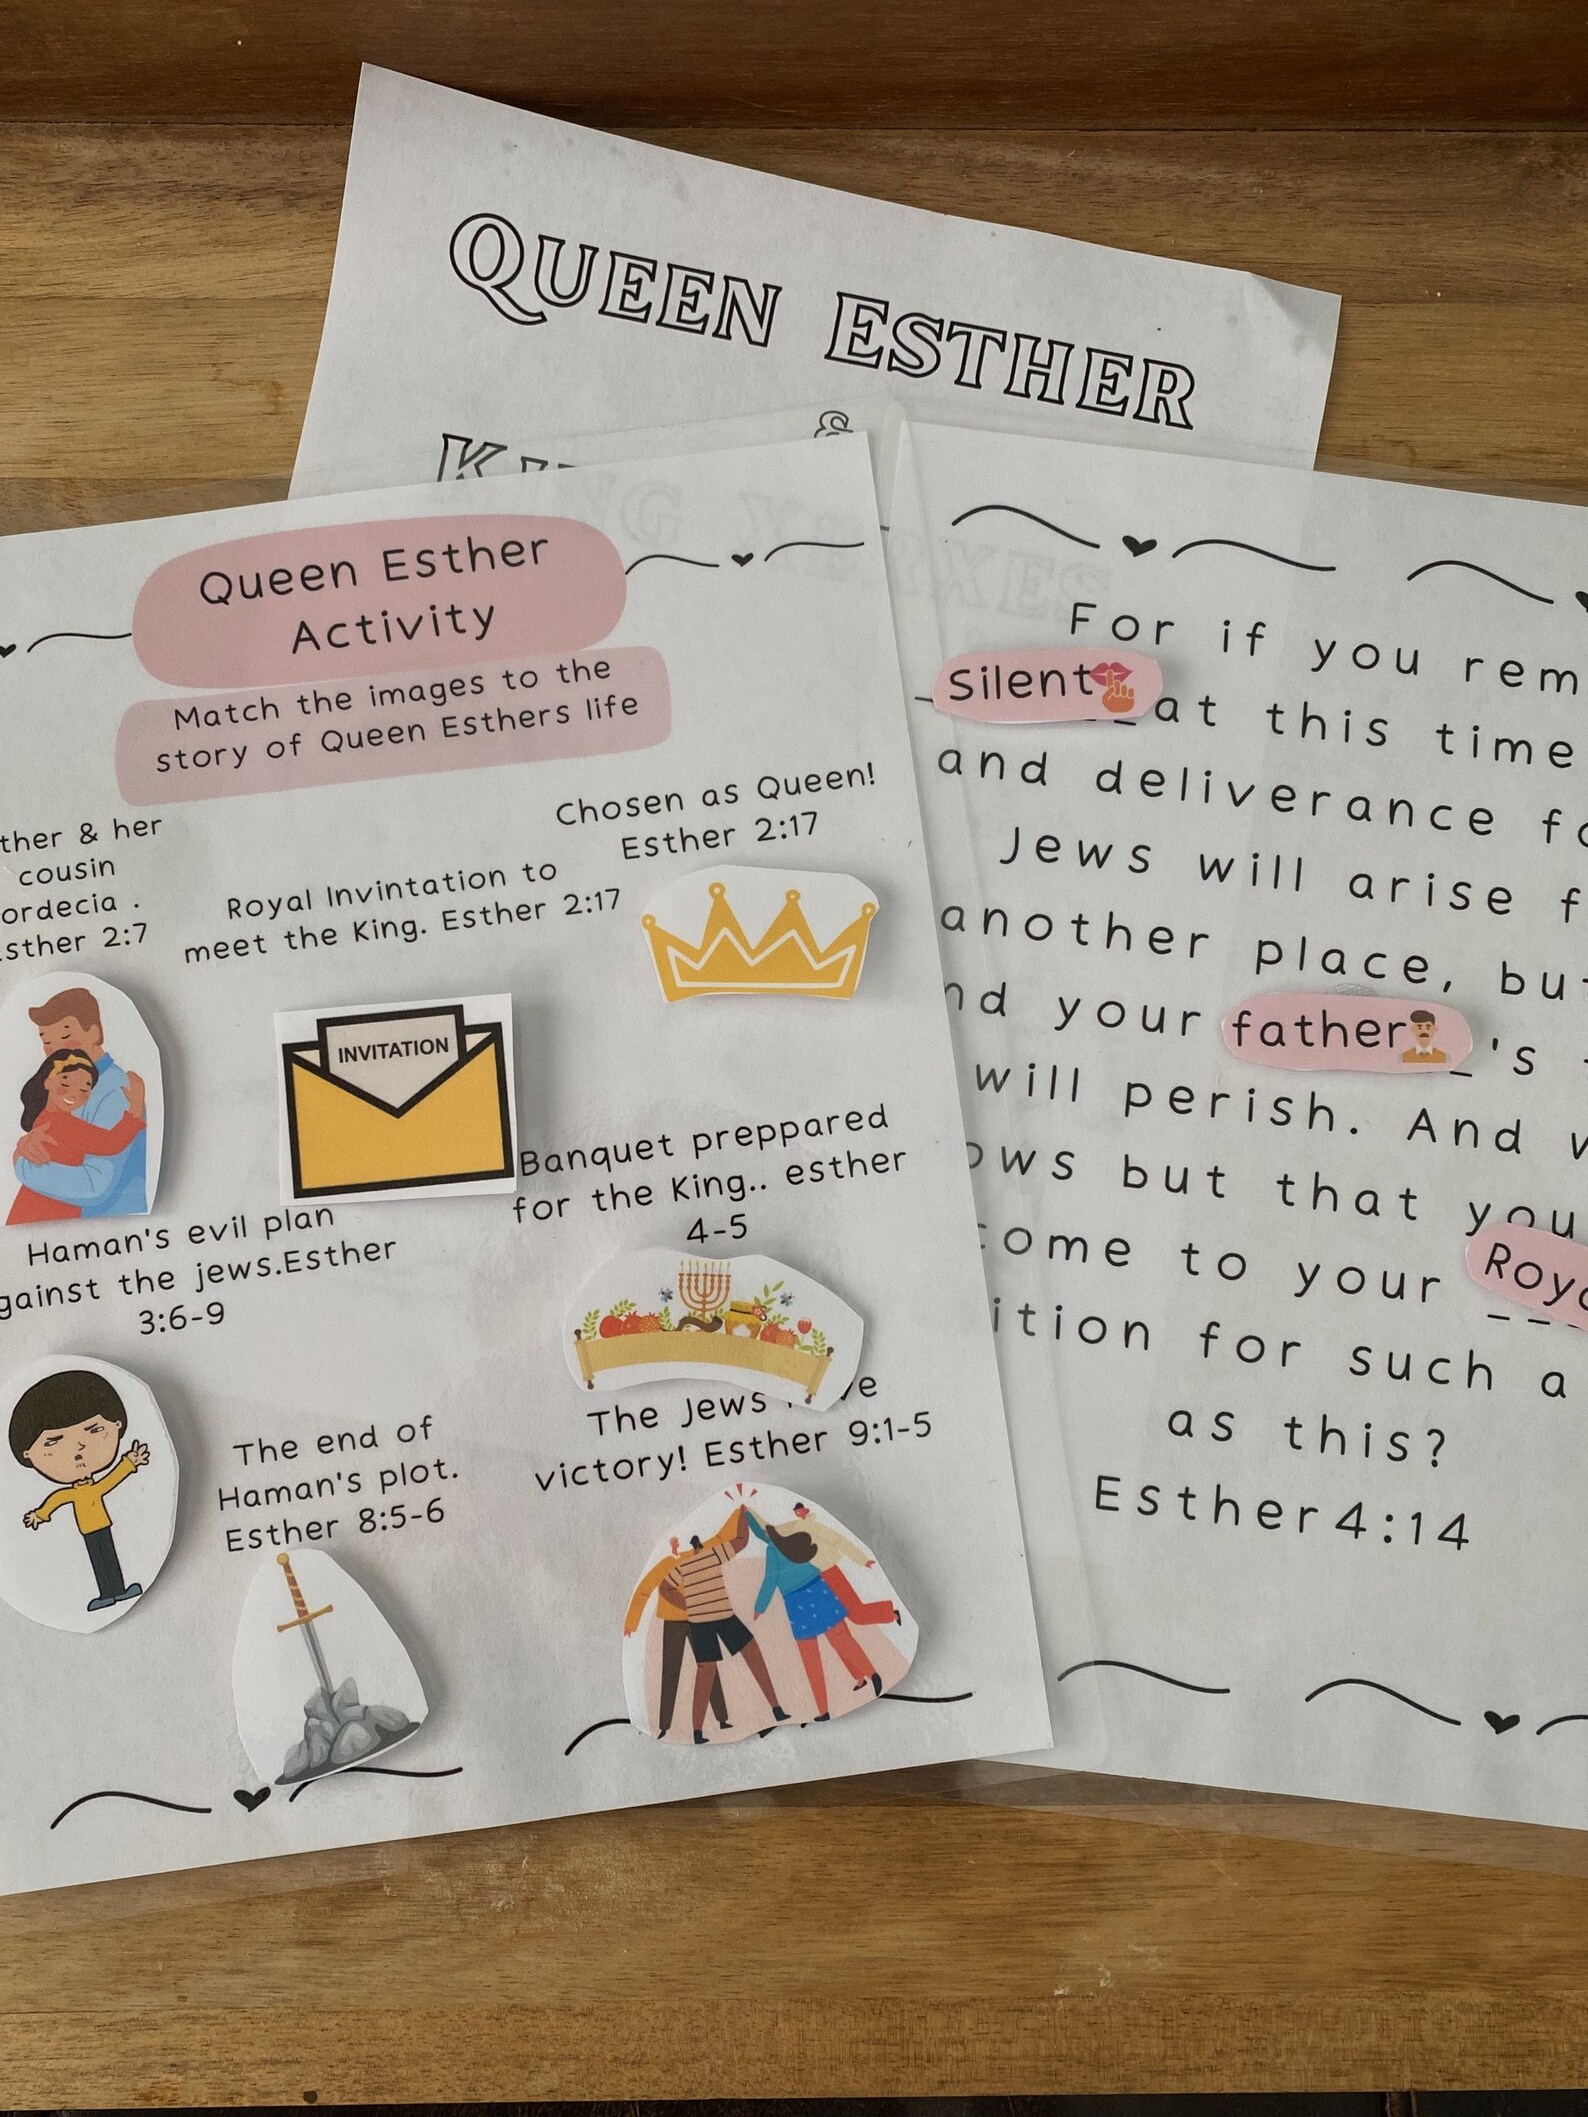 QUEEN ESTHER
&
KING XERXES
Queen Esther
Activity
Match the images to the
story of Queen Esthers life
ther & her
cousin
ordecia .
sther 2:7
Royal Invintation to
meet the King. Esther 2:17
Chosen as Queen!
Esther 2:17
INVITATION
Haman's evil plan
gainst the jews.Esther
3:6-9
Banquet preppared
for the King.. esther
4-5
The end of
Haman's plot.
Esther 8:5-6
The Jews
victory! Esther 9:1-5
For if you rem
silent at this time
and deliverance fo
Jews will arise f
another place, but
nd your father_'s
will perish. And w
ows but that you
come to your Roya
ition for such a
as this?
Esther4:14